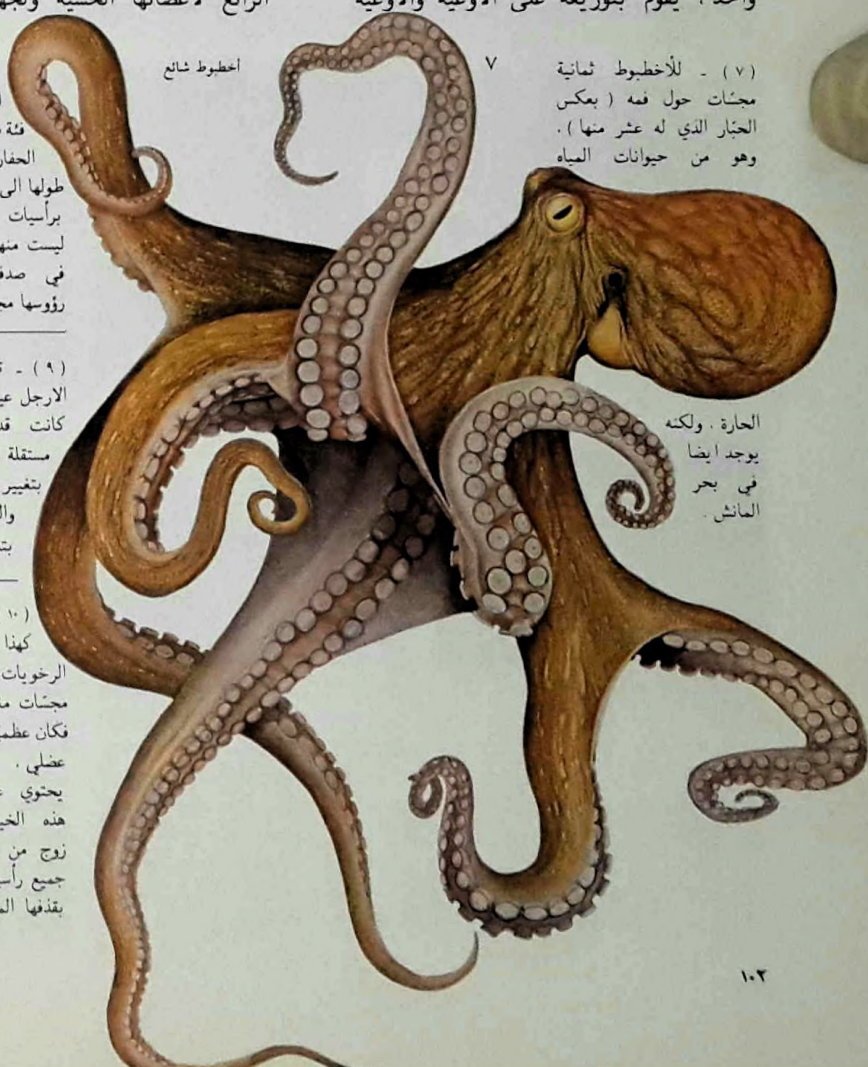 واحد ، يقوم بتوزيعه على الأوعية والأوعية
الرائع لأعضائها الحسية
٧
(٧) ـ للأخطبوط ثمانية
مجسّات حول فمه ( بعكس
الحبّار الذي له عشر منها ).
وهو من حيوانات المياه
الحارة . ولكنه
يوجد ايضا
في بحر
المانش .
أخطبوط شائع
فئة
الحفار
طولها الى
برأسيات
ليست منه
في صدف
رؤوسها مج
(٩) ـ
الارجل عي
كانت قد
مستقلة
بتغيير
وال
بت
(١٠
كهذا
الرخويات
مجسّات م
فكان عظم
عضلي .
يحتوي
هذه الخي
زوج من
جميع رأس
بقذفها الم
١٠٢